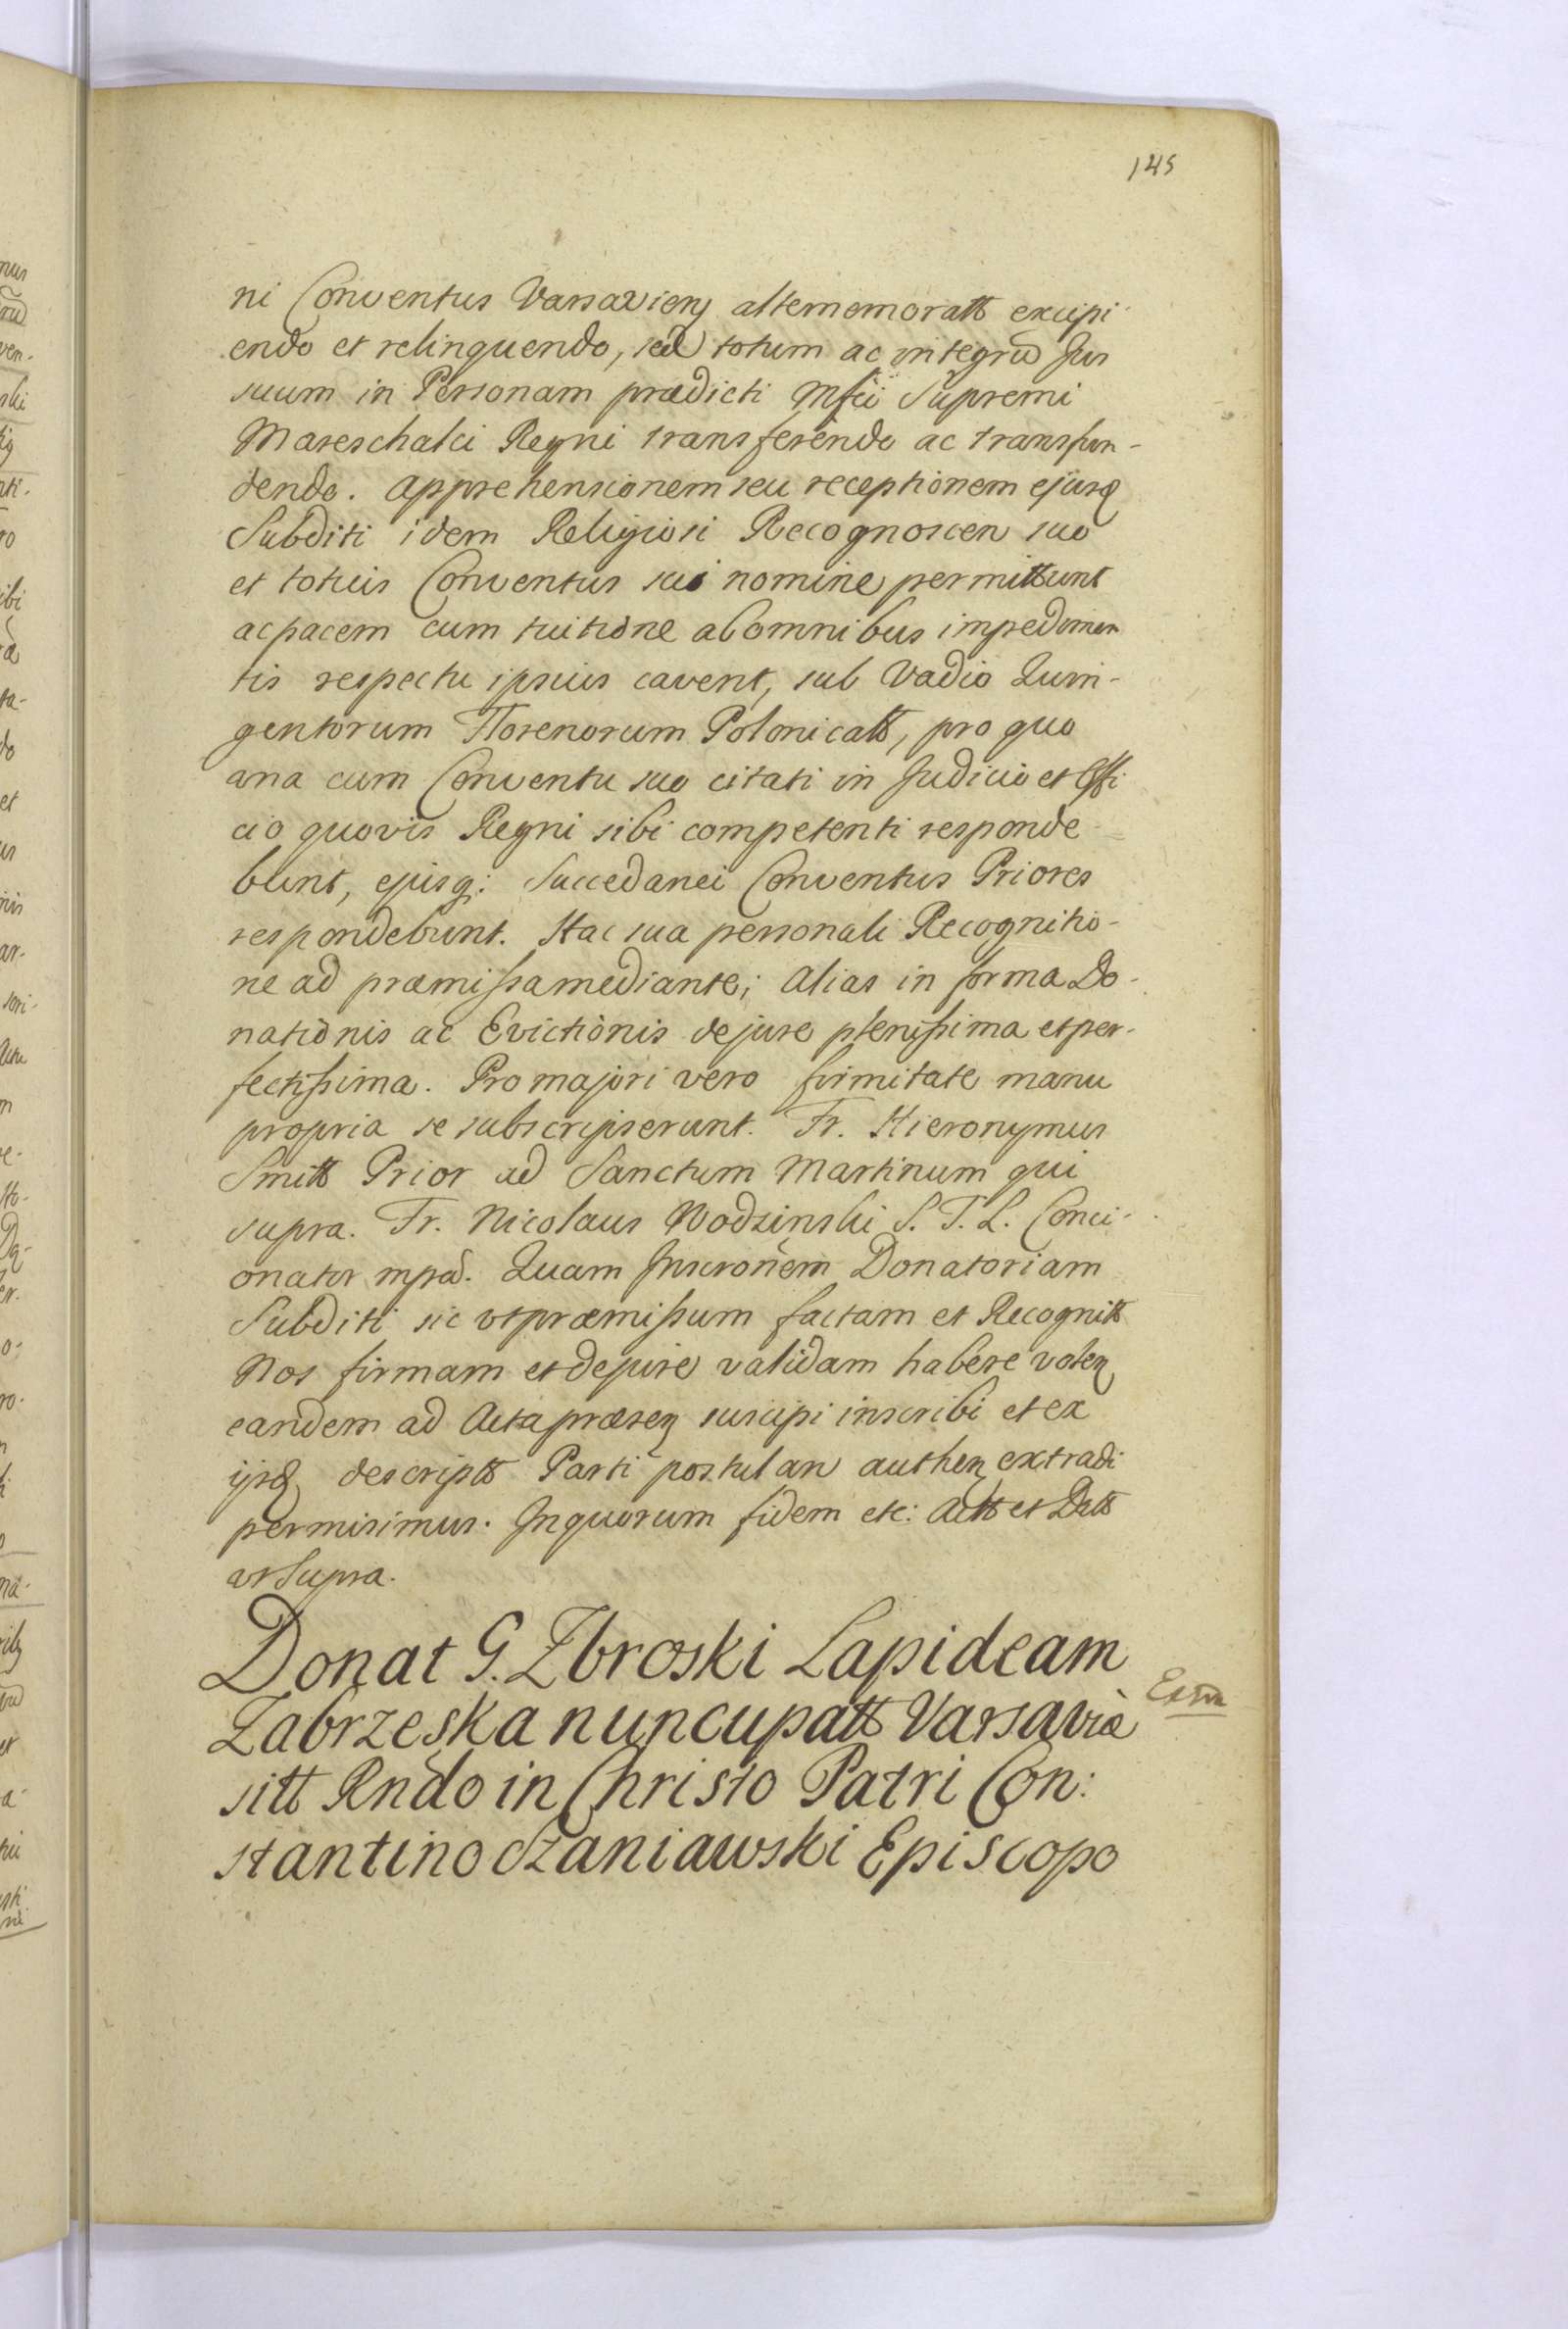 145
ni Conventus Varsavien altememoratt excipi-
endo et relinquendo, sed totum ac integrũ Jus
suum in Personam prædicti Mfci Supremi
Mareschalci Regni transferendo ac transfun-
dendo. Apprehensionem seu receptionem ejusd
Subditi idem Religiosi Recognoscen suo
et totius Conventus sui nomine permittunt
ac pacem cum tuitione ab omnibus impedimen
tis respectu ipsius cavent, sub Vadio Quin-
gentorum Florenorum Polonicatt, pro quo
una cum Conventu suo citati in Judicio et Offi
cio quovis Regni sibi competenti responde-
bunt, ejusq: Succedanei Conventus Priores
respondebunt. Hac sua personali Recognitio-
ne ad præmissa mediante; Alias in forma Do-
nationis ac Evictionis de jure plenissima et per-
fectissima. Pro majori vero firmitate manu
propria se subscripserunt. Fr. Hieronymus
Smitt Prior ad Sanctum Martinum qui
supra. Fr. Nicolaus Wodzinski S. T. L. Conci-
onator mpa. Quam Inscronem Donatoriam
Subditi sic ut præmissum factam et Recognitt
Nos firmam et de jure validam habere volen
eandem ad Acta præsen suscipi inscribi et ex
ijsd descriptt Parti postulan authen extradi
permisimus. In quorum fidem etc: Actt et Datt
ut Supra.
Donat G. Zbroski Lapideam
Zabrzeska nuncupatt Varsaviæ
sitt Rndo in Christo Patri Con:
stantino Szaniawski Episcopo